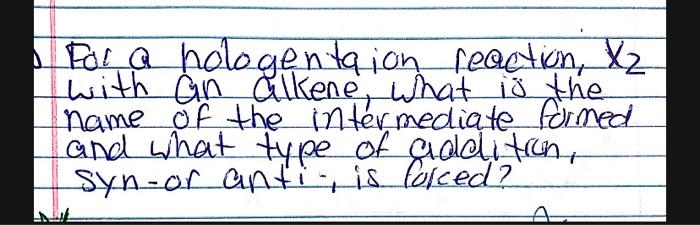 For a hologentaion reaction, X2
with an alkene, what is the
name of the intermediate formed
and what type of additran,
syn-or anti-, is forced?